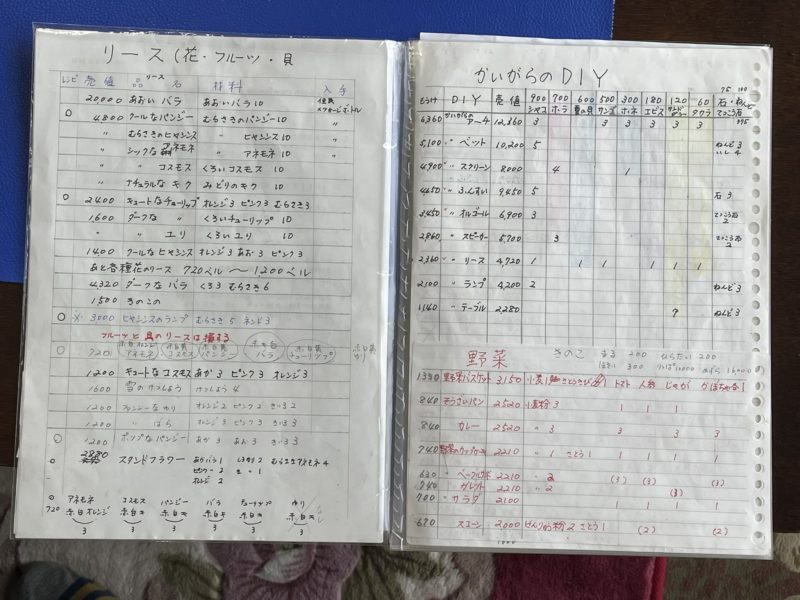 リース(花・フルーツ・貝
レシピ 売値 品 リース 名 材料 入手
20000 あおい バラ あおいバラ 10 住民 メッセージボトル
○ 4800 クールなパンジー むらさきのパンジー 10 〃
〃 むらさきのヒヤシンス 〃 ヒヤシンス 10 〃
〃 シックな アネモネ 〃 アネモネ 10 〃
〃 〃 コスモス くろいコスモス 10
〃 ナチュラルな キク みどりのキク 10
○ 2400 キュートなチューリップ オレンジ3 ピンク3 むらさき3
1600 ダークな 〃 くろいチューリップ 10
〃 〃 ユリ くろいユリ 10
1400 クールなヒヤシンス オレンジ3 あお3 ピンク3
あと各種花のリース 720ベル 〜 1200ベル
4320 ダークな バラ くろ3 むらさき6
1500 きのこの
○ ※ 3000 ヒヤシンスのランプ むらさき5 ネンド3
フルーツと貝のリースは損する
○ 720 赤白オレンジ アネモネ 赤白黄 コスモス 赤白黄 パンジー 赤白 バラ 赤白黄 チューリップ
○ 1200 キュートなコスモス あか3 ピンク3 オレンジ3
1600 雪のけっしょう けっしょう4
1200 ファンシーなゆり オレンジ2 ピンク2 きい32
1200 〃 ばら オレンジ3 ピンク3 きい3
○ 1200 ポップなパンジー あか3 あお3 きい3
○ 2880 スタンドフラワー あかバラ1 むらさきアネモネ4
ピンク〃2
オレンジ2
アネモネ コスモス パンジー バラ チューリップ ゆり
○ 720 赤白オレンジ 赤白キ 赤白キ 赤白キ 赤白キ 赤白キ
3 3 3 3 3 3
かいがらのDIY
75 100
もうけ DIY 売値 900 シャコ 700 ホラ 600 夏の貝 500 サンゴ 300 ホネ 180 エビス 120 サンドダラー 60 タカラ 石・ねんど てっこう石
375
6360 かいがらの アーチ 12,360 3 3 3 3 3 3
5,100 〃 ベット 10,200 5 ねんど3 いし4
4,900 〃 スクリーン 8000 4 1
4450 〃 ふんすい 9,450 5 石3
3,450 〃 オルゴール 6,900 3 てっこう石2
2860 〃 スピーカー 5,700 3 てっこう石2
2360 〃 リース 4,720 1 1 1 1 1 1
2100 〃 ランプ 4,200 2 ねんど3
1,140 〃 テーブル 2,280 7 ねんど3
野菜 きのこ まる 200 ひらたい 200
ほそい 300 りっぱ 10000
1350 野菜バスケット 3150 小麦1 さとうきび トマト 人参 じゃが かぼちゃ各1
840 そうざいパン 2520 小麦粉3 1 1 1
840 カレー 2520 〃 3 3 3 3
740 野菜のカップケーキ 2210 〃 1 さとう1 1 1 1 1
630 〃 ベーグルサンド 2210 〃 2 (3) (3) (3)
740 〃 ガレット 2210 〃 2 (3)
700 〃 サラダ 2100 1 1 1 1
690 スコーン 2,000 ぜんりゅう粉2 さとう1 (2) (2)